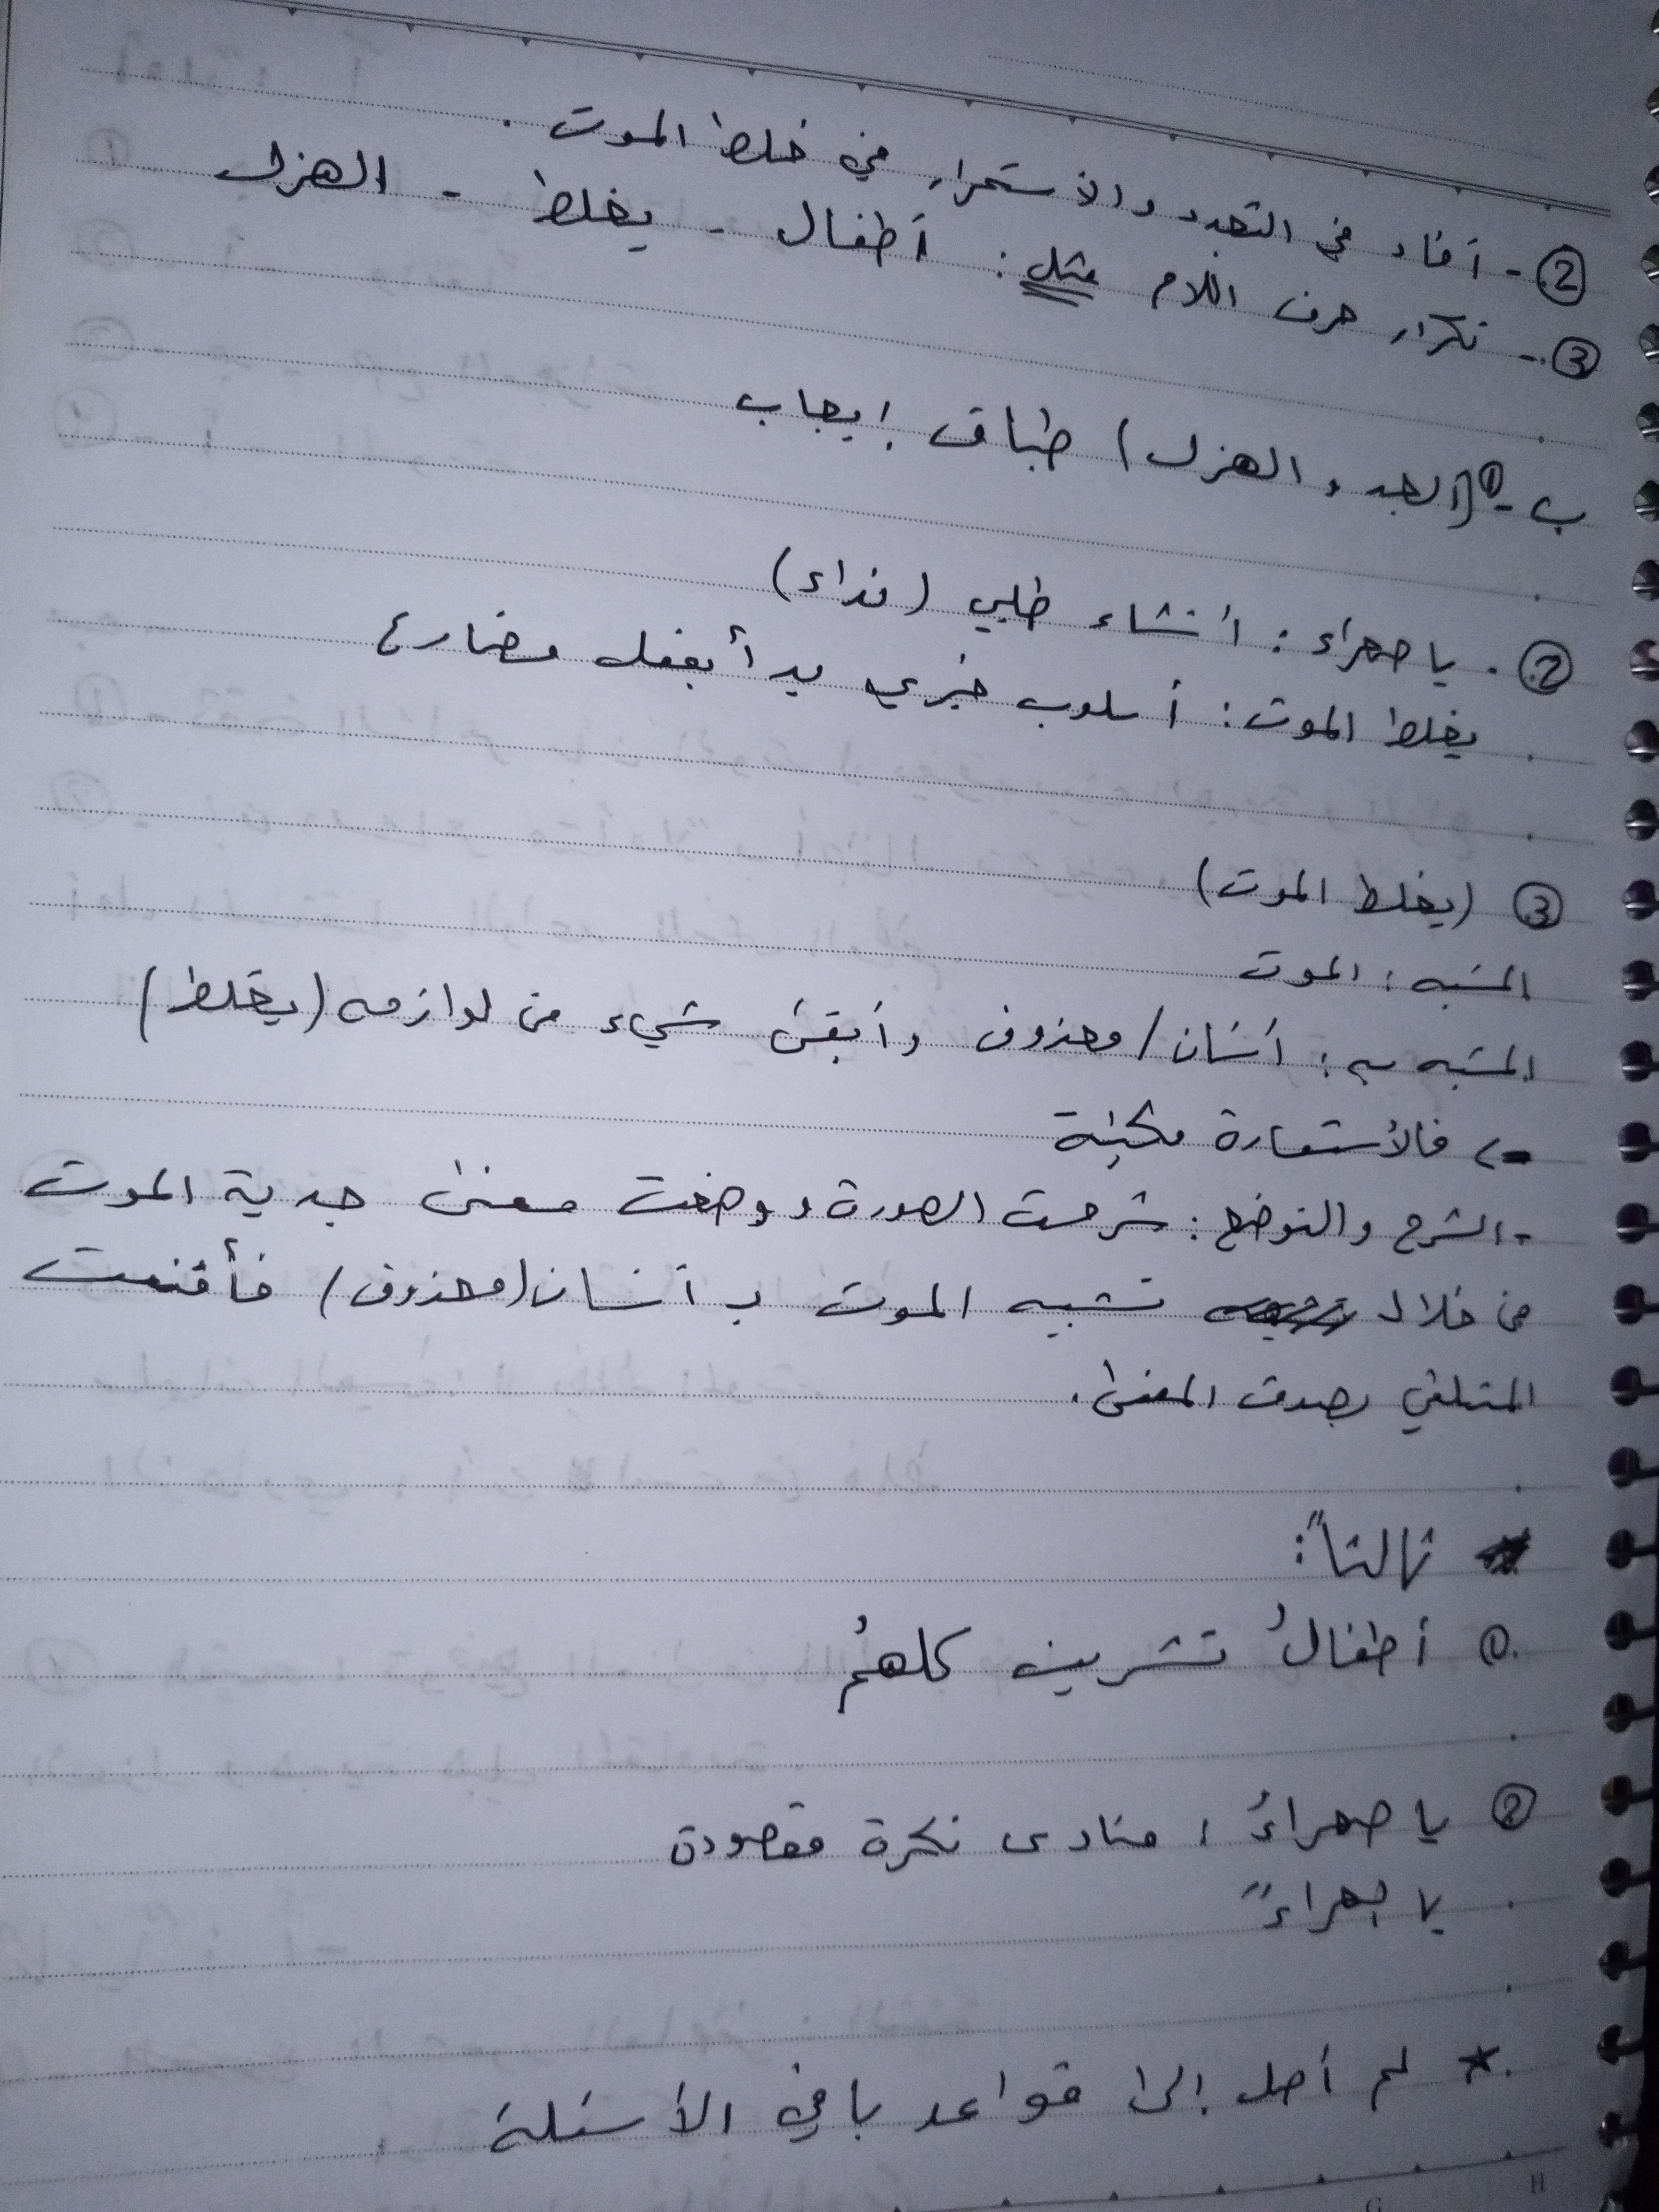 ② - أفاد في التجدد والاستمرار في غلط الموت .
③ - تكرار حرف اللام مثل : أطفال - يغلط - الهزل
ب - ① (الجد و الهزل) طباق إيجاب
② . يا صحراء : انشاء طلبي (نداء)
يغلط الموت : أسلوب خبري بدأ بفعل مضارع
③ (يغلط الموت)
المشبه : الموت
المشبه به : أنسان / محذوف وأبقى شيء من لوازمه (يغلط)
فالأستعارة مكنية
- الشرح والتوضيح : شرحت الصورة ووضحت معنى جدية الموت
من خلال تشبيه الموت بـ أنسان (محذوف) فأقنعت
المتلقي بصدق المعنى .
ثالثاً :
① أطفالُ تشرين كلهمُ
② يا صحراءُ : منادى نكرة مقصودة
يا
* لم أصل إلى قواعد باقي الأسئلة
H
G